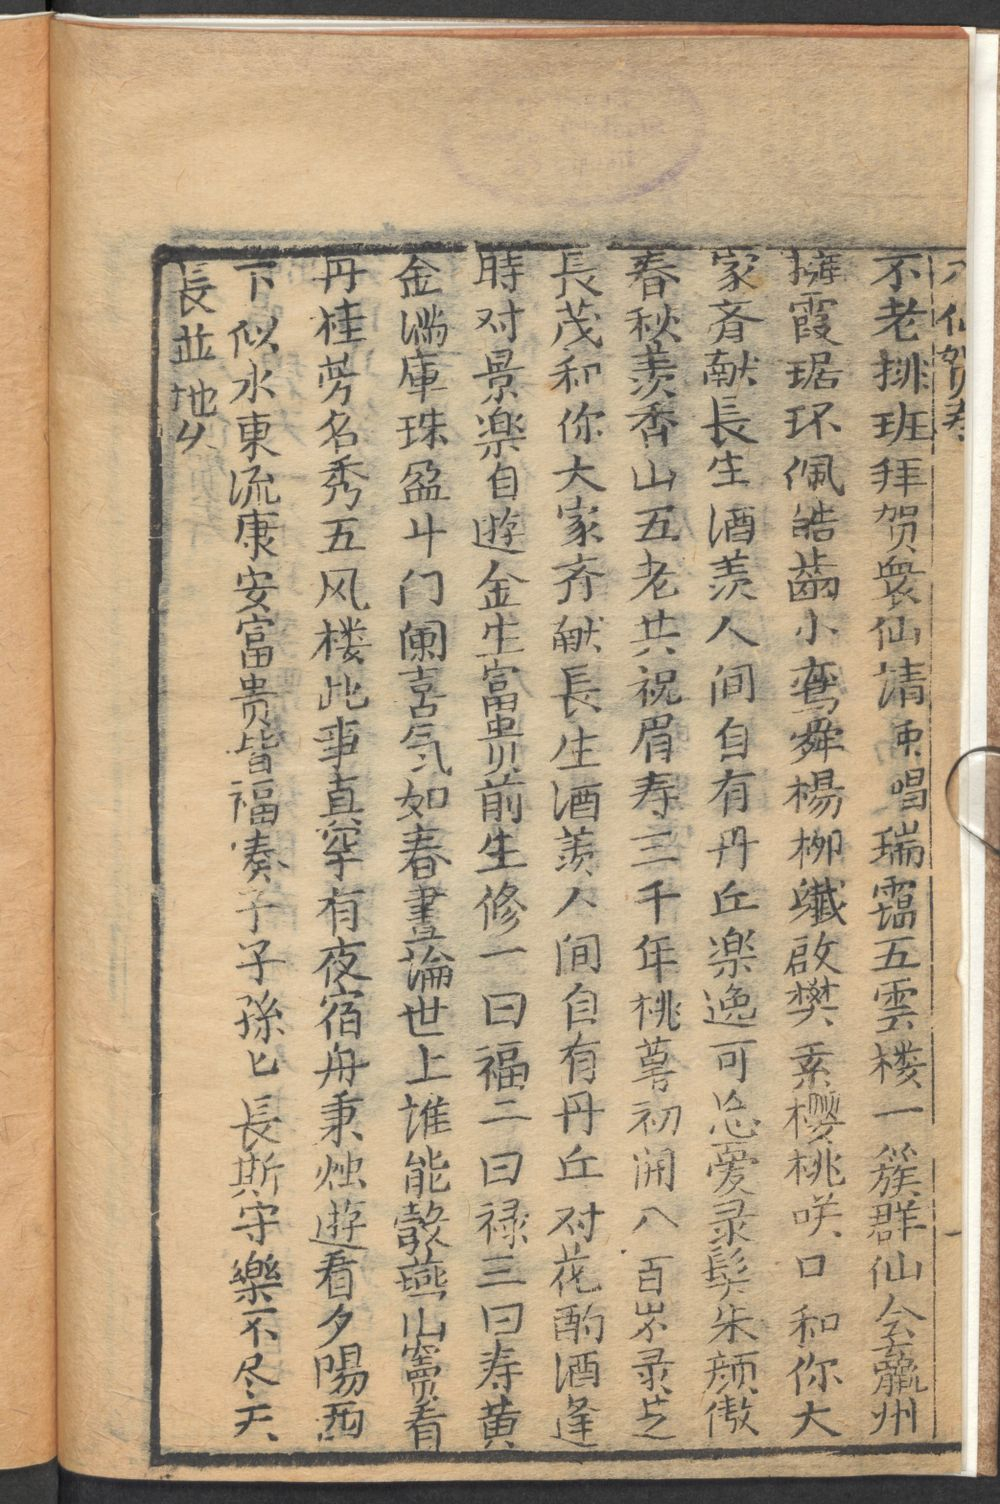 八仙賀寿
不老排班拜贺衆仙請東唱瑞靄五雲楼一簇群仙会瀛州
擁霞琚环佩皓齒小鸾舜楊柳纖啟樊素樱桃咲口和你大
家斉献長生酒羡人间自有丹丘楽逸可忘憂录髩朱颜傲
春秋羡香山五老共祝眉寿三千年桃萼初闹八百岁录芝
長茂和你大家齐献長生酒羡人间自有丹丘对花酌酒逢
時对景楽自遊金生富贵前生修一曰福二曰禄三曰寿黄
金满庫珠盈斗门闌喜气如春晝論世上誰能彀燕山竇看
丹桂芳名秀五风楼此事真罕有夜宿舟秉烛遊看夕陽西
下似水東流康安富贵皆福奏子子孫匕長斯守樂不尽天
長並地久